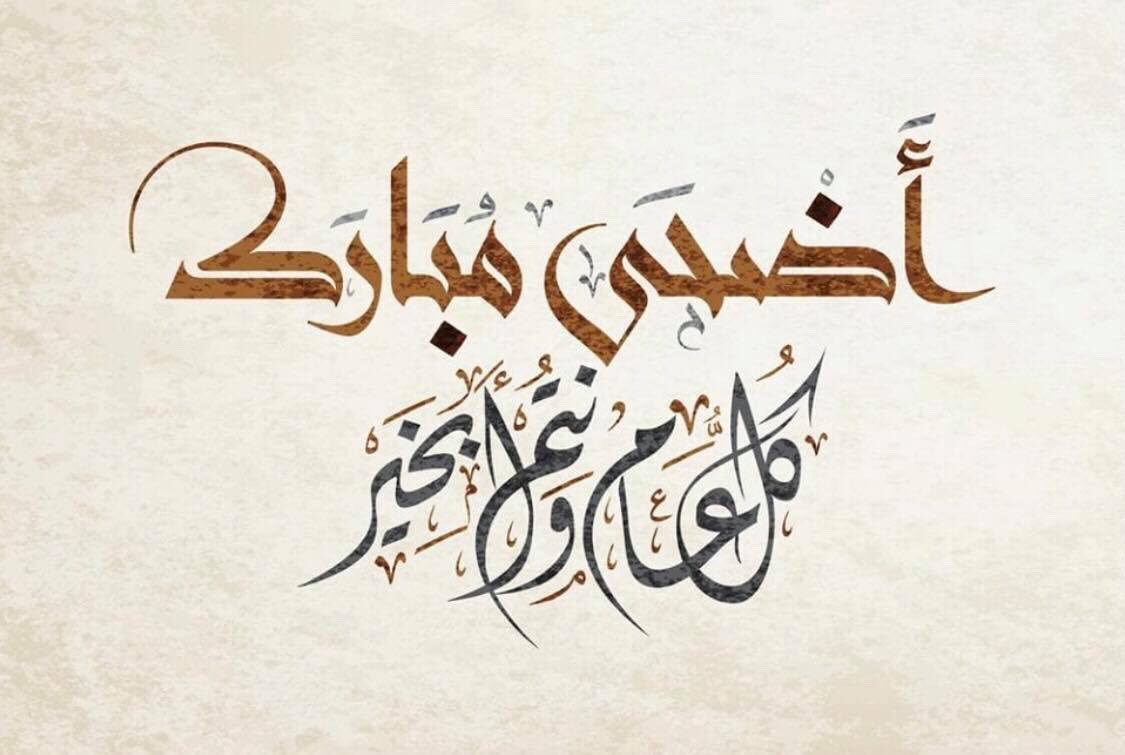 أَضْحَى مُبَارَك
كُلُّ عَام وَأَنْتُمْ بِخَيْر